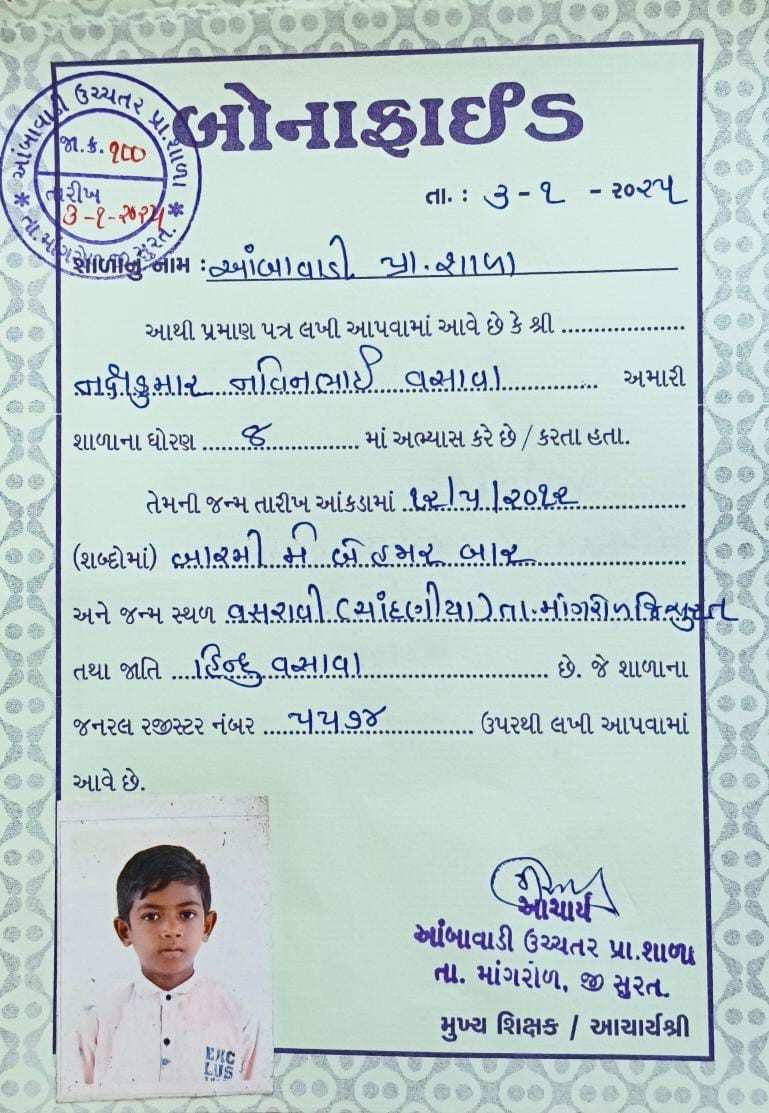 આંબાવાડી ઉચ્ચતર પ્રા.શાળા
જા.ક્ર. ૧૦૦
તારીખ
૩-૧-૨૦૨૫
* તા.માંગરોળ, જી સુરત. *
બોનાફાઈડ
તા. : ૩ - ૧ - ૨૦૨૫
શાળાનું નામ : આંબાવાડી પ્રા.શાળા
આથી પ્રમાણ પત્ર લખી આપવામાં આવે છે કે શ્રી ..................
નવિનભાઈ વસાવા ............ અમારી
શાળાના ધોરણ ...... ૭ ............. માં અભ્યાસ કરે છે / કરતા હતા.
તેમની જન્મ તારીખ આંકડામાં ૧૨/૫/૨૦૧૨ ..................
(શબ્દોમાં) બારમી મે બે હજાર બાર ..................
અને જન્મ સ્થળ વસરાવી (ચાંદણીયા) તા.માંગરોળ જિ સુરત
તથા જાતિ ... હિન્દુ વસાવા .......................... છે. જે શાળાના
જનરલ રજીસ્ટર નંબર ... ૫૫૭૪ ............ ઉપરથી લખી આપવામાં
આવે છે.
EXC
LUS
આચાર્ય
આંબાવાડી ઉચ્ચતર પ્રા.શાળા
તા. માંગરોળ, જી સુરત.
મુખ્ય શિક્ષક / આચાર્યશ્રી